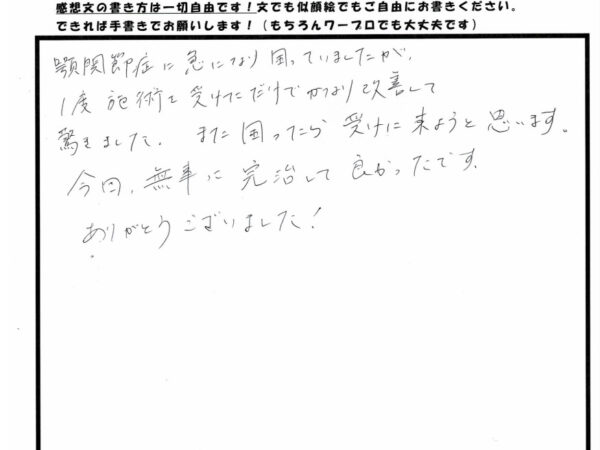 感想文の書き方は一切自由です！文でも似顔絵でもご自由にお書きください。
できれば手書きでお願いします！（もちろんワープロでも大丈夫です）
顎関節症に急になり困っていましたが、
1度施術を受けただけでかなり改善して
驚きました。また困ったら受けに来ようと思います。
今回、無事に完治して良かったです。
ありがとうございました！